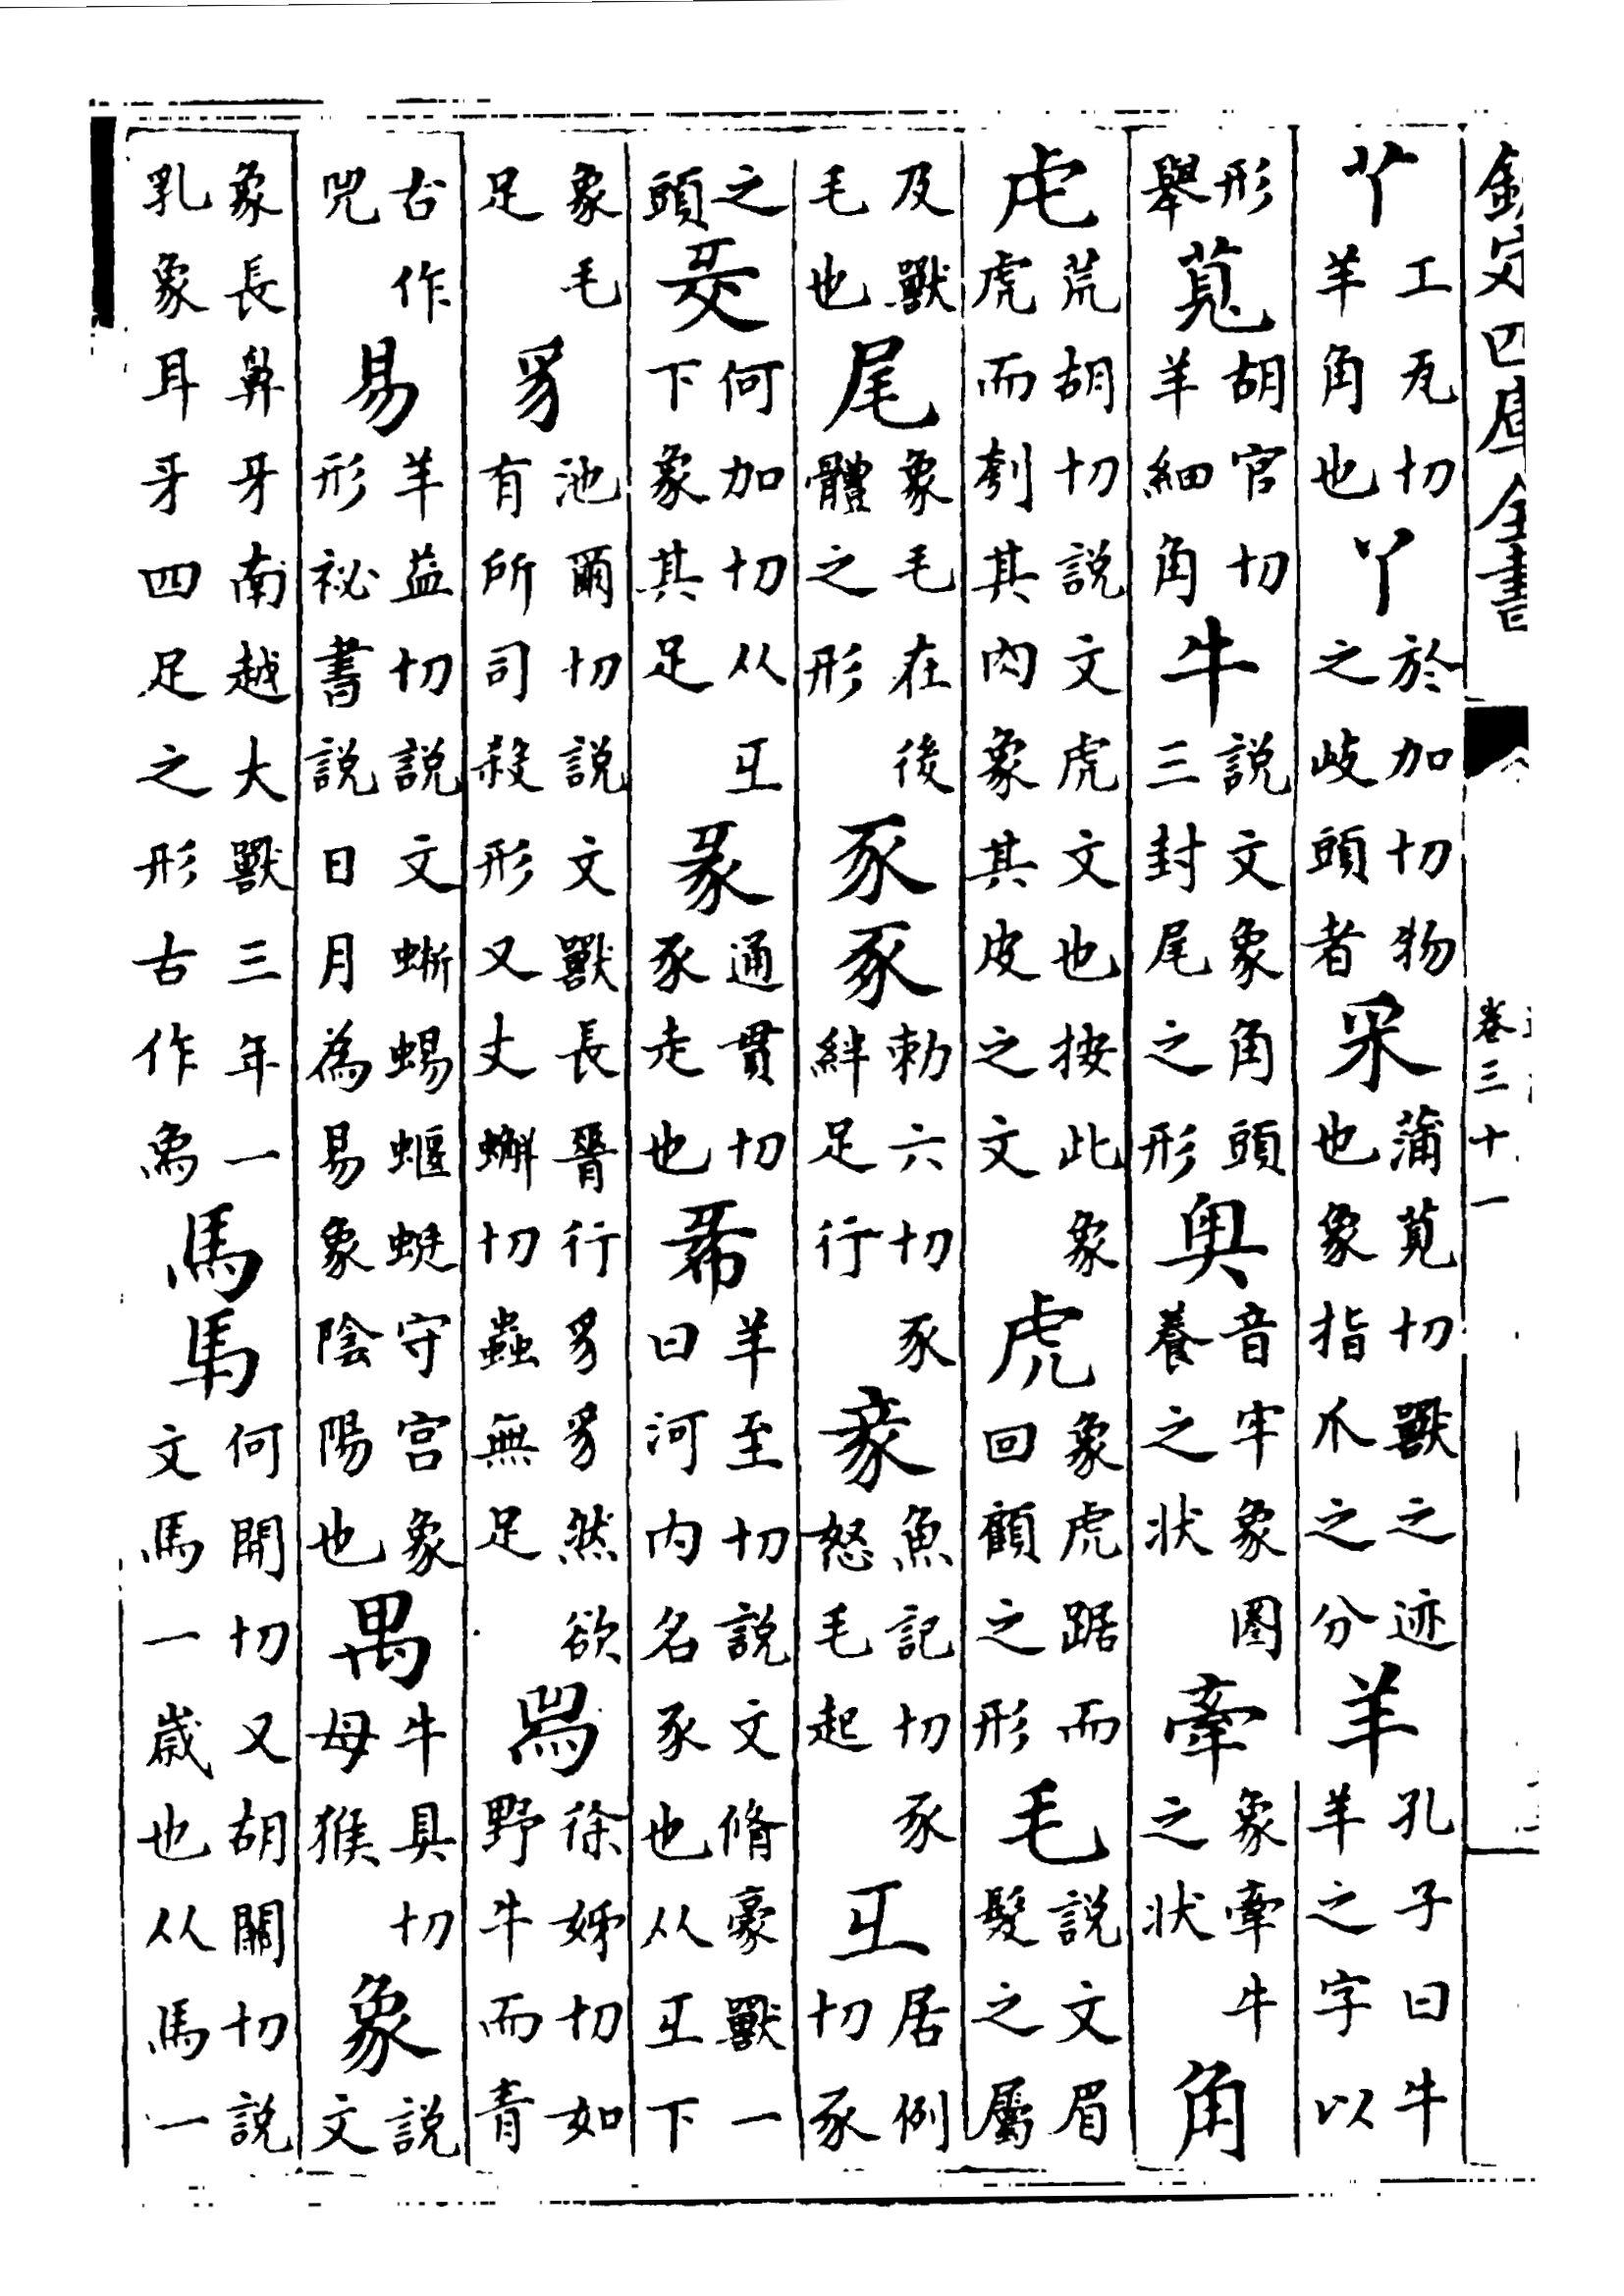 欽定四庫全書 卷三十一
𦫳工瓦切羊角也丫於加切物之岐頭者釆蒲莧切獸之迹也象指爪之分羊孔子曰牛羊之字以
形舉莧胡官切羊細角牛說文象角頭三封尾之形音牢象圈養之状牽象牽牛之状角
虍荒胡切說文虎文也按此象虎而刳其肉象其皮之文虎象虎踞而回顧之形毛說文眉髮之屬
及獸毛也尾象毛在後體之形豕豖勅六切豕絆足行豙魚記切豕怒毛起彑居例切豕
之頭𢑓何加切从彑下象其足彖通貫切豕走也㣇羊至切說文脩豪獸一曰河内名豕也从彑下
象毛足豸池爾切說文獸長脊行豸豸然欲有所司殺形又丈蠏切蟲無足𤉡徐姊切如野牛而青
古作兕易羊益切說文蜥蜴蝘蜓守宮象形祕書說日月為易象陰陽也禺牛具切母猴象說文
象長鼻牙南越大獸三年一乳象耳牙四足之形古作馬何開切又胡關切說文馬一歲也从馬一